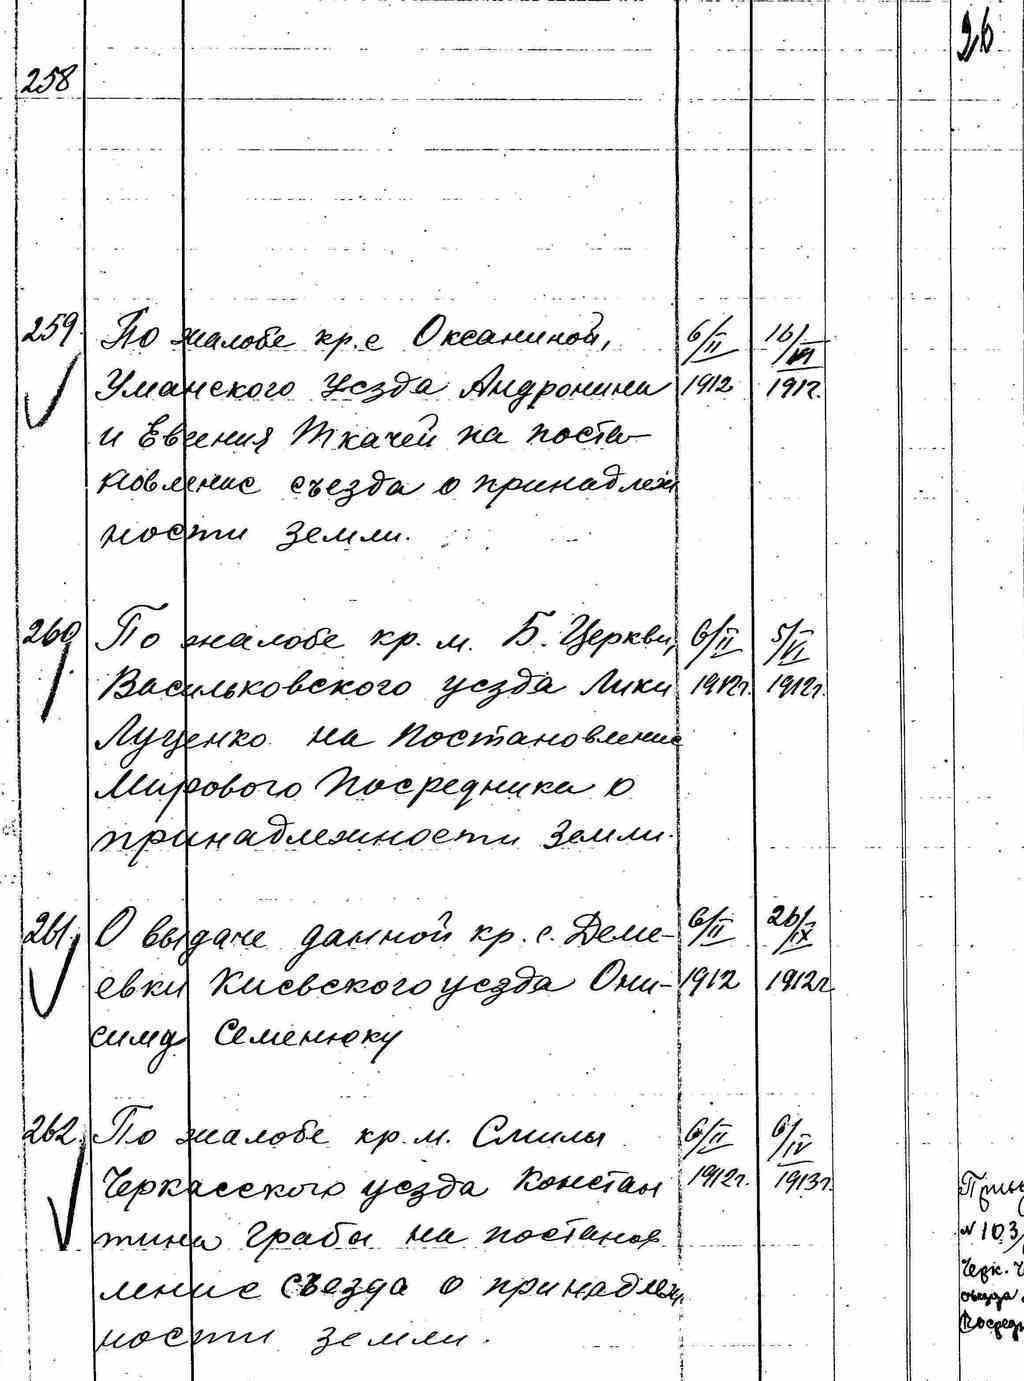 26
258
259. По жалобе кр. с Оксаниной, 6/II 16/VII
Уманского уезда Андронина 1912 191г.
и Евгения Ткачей на поста-
новление съезда о принадлеж
ности земли.
260 По жалобе кр. м. Б. Церкви, 6/II 5/VI
Васильковского уезда Луки 1912г. 1912г.
Луценко на Постановление
Мирового Посредника о
принадлежности земли.
261. О выдаче данной кр. с. Деме- 6/II 26/IX
евки Киевского уезда Они- 1912 1912г
симу Семенюку
262. По жалобе кр. м. Смилы 6/II 6/IV
Черкасского уезда Констан 1912г. 1913г.
тина Грабы на постанов
ление съезда о принадлеж
ности земли.
№ 103
Черк.
съезда
Посред